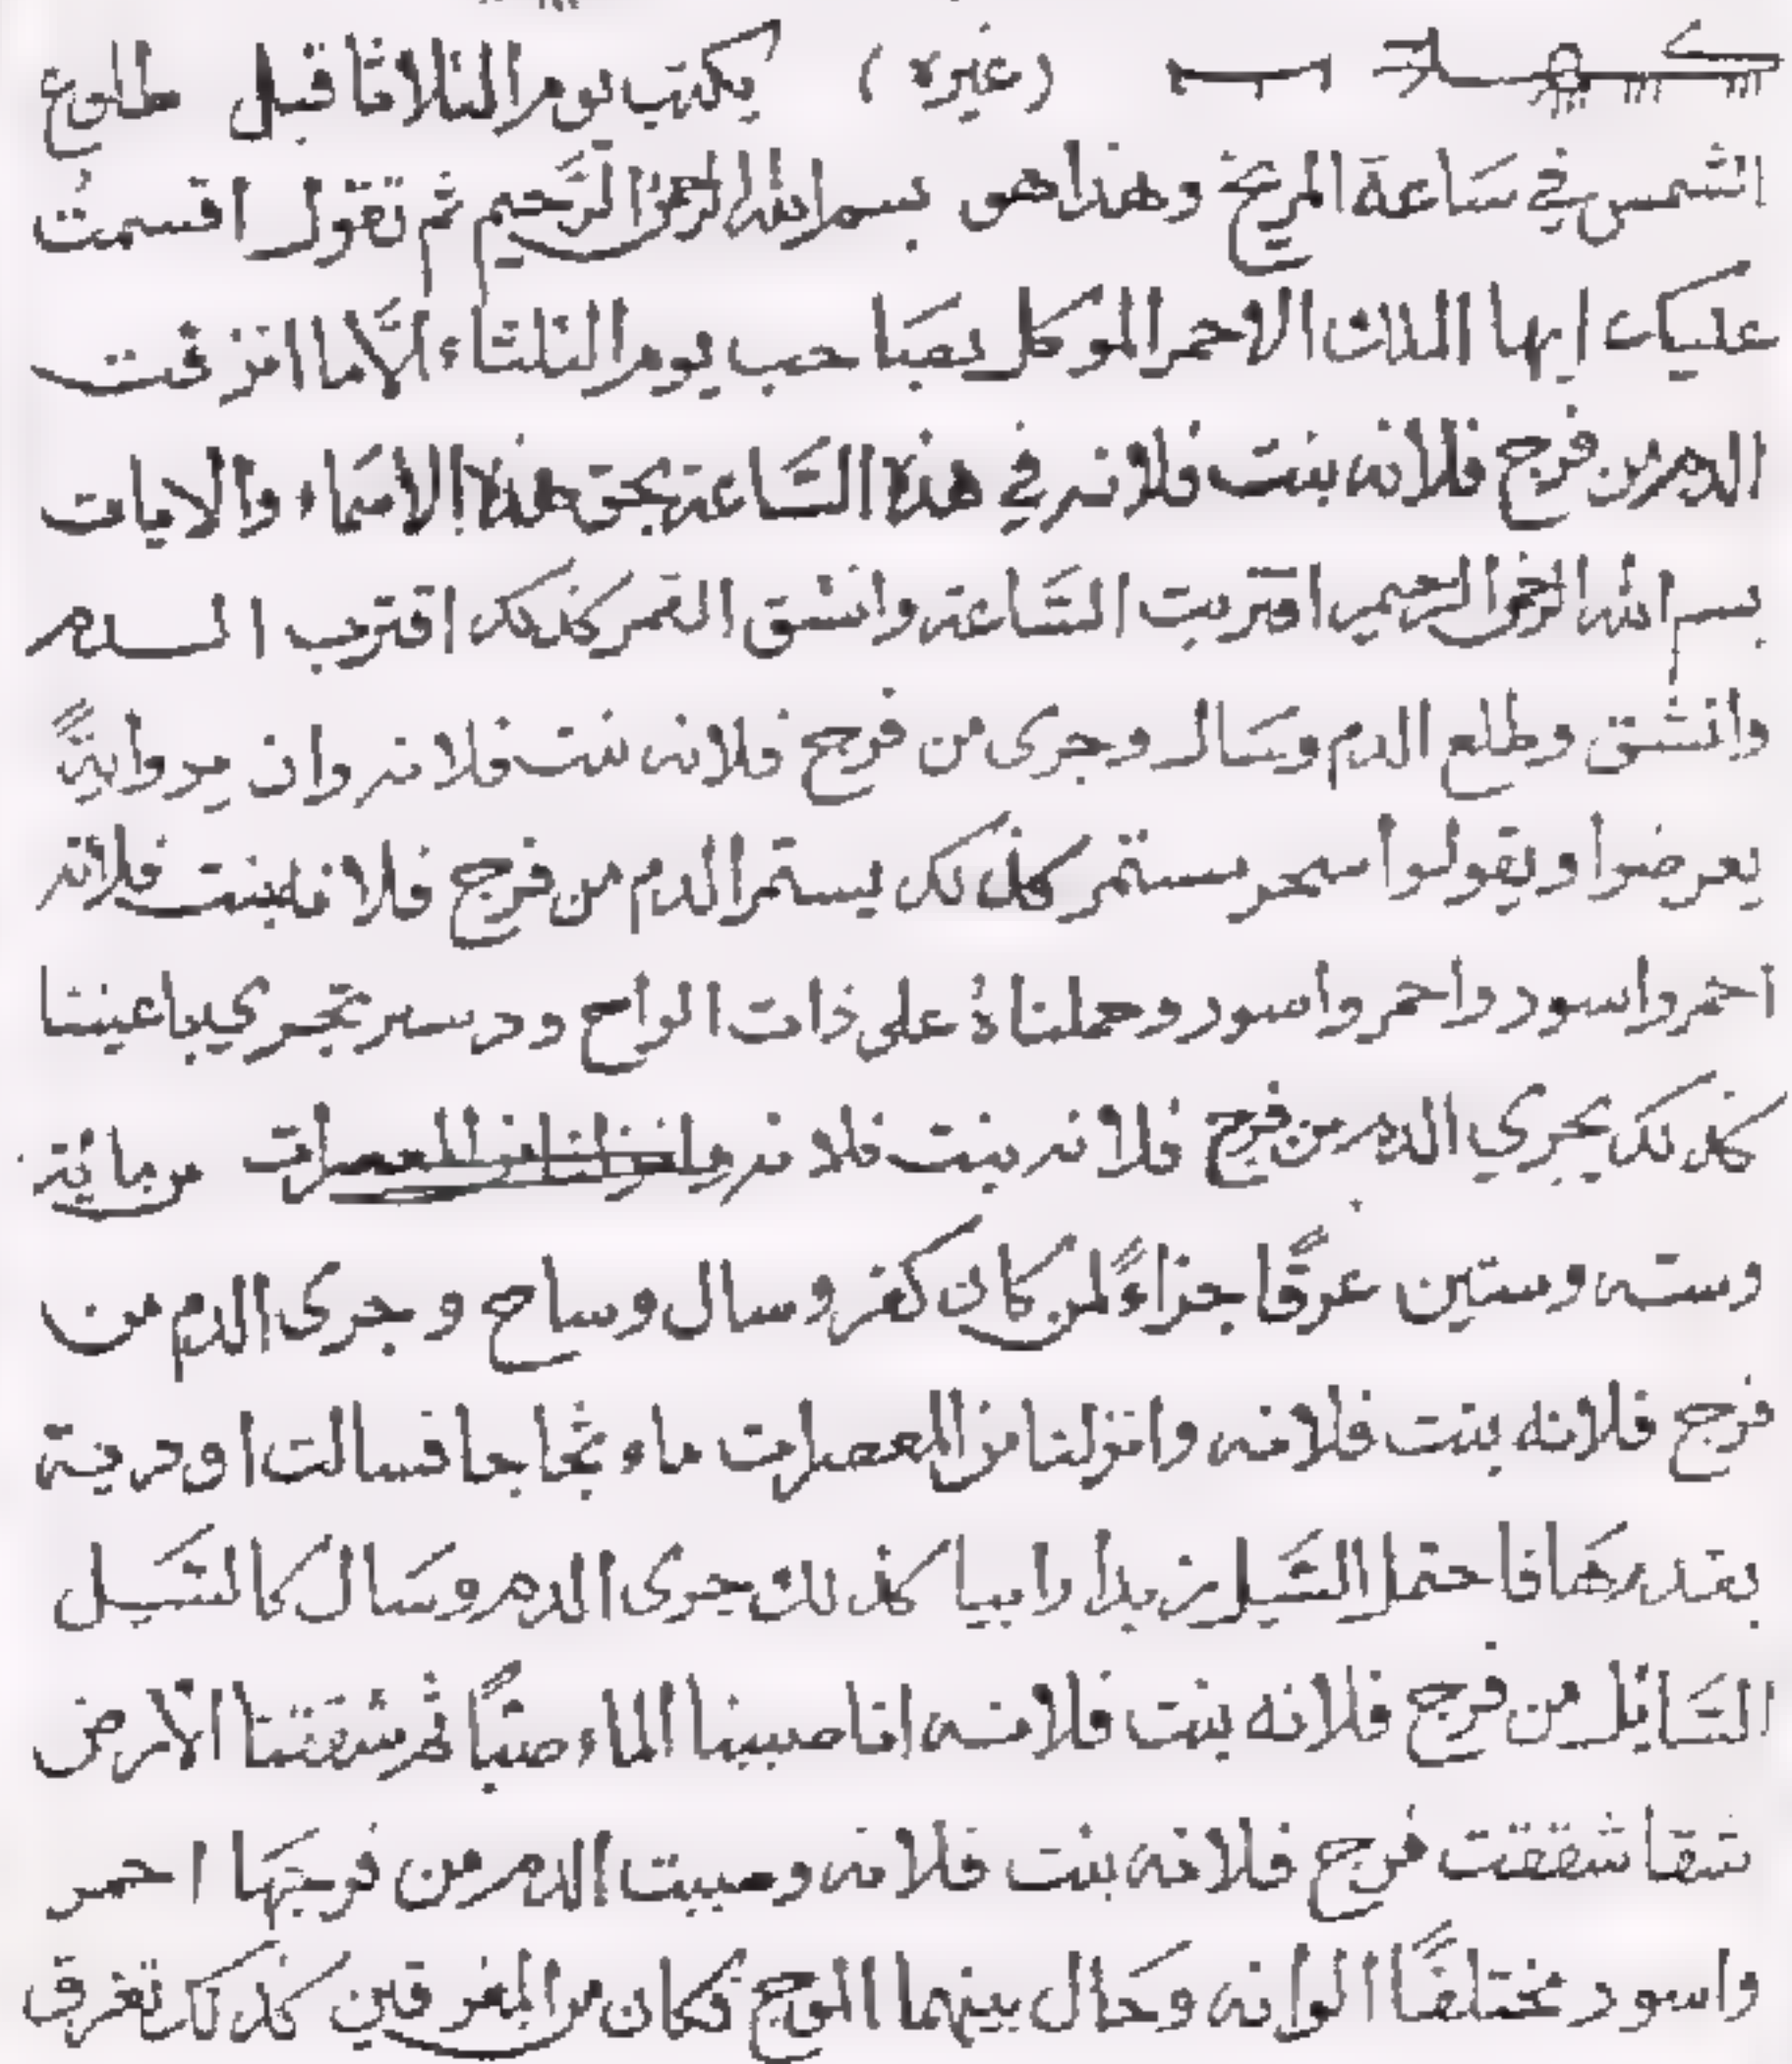 (غيره) يكتب يوم الثلاثا قبل طلوع
الشمس في سَاعة المريخ وهذا هو بسم الله الرحمن الرَّحيم ثم تقول اقسمتُ
عليك ايها الملك الاحمر الموكل بصَاحب يوم الثلثاء الَّا ما انزفت
الدم من فرج فلانه بنت فلانه في هذه السَّاعة بحق هذه الاسمَاء والايات
بسم الله الرحمن الرحيم اقتربت السَّاعة وانشق القمر كذلك اقترب الدم
وانشق وطلع الدم وسَال وجرى من فرج فلانه بنت فلانه وان يروا ايةً
يعرضوا ويقولوا سحر مستمر كذلك يستمر الدم من فرج فلانه بنت فلانه
احمر واسود واحمر واسود وحملناهُ على ذات الواح ودسر تجري باعيننا
كذلك يجري الدم من فرج فلانه بنت فلانه وانزلنا من المعصرات من مائة
وسته وستين عرقًا جزاءً لمن كان كفر وسال وساح وجرى الدم من
فرج فلانه بنت فلانه وانزلنا من المعصرات ماء ثجاجا فسالت اودية
بقدرهَا فاحتمل السَّيل زبدا رابيا كذلك جرى الدم وسَال كالسَّيل
السَّايل من فرج فلانه بنت فلانه انا صببنا الماء صبًّا ثم شققنا الارض
شقا شققت فرج فلانه بنت فلانه وصببت الدم من فرجهَا احمر
واسود مختلفًا الوانه وحَال بينهما الموج فكان من المغرقين كذلك تغرق